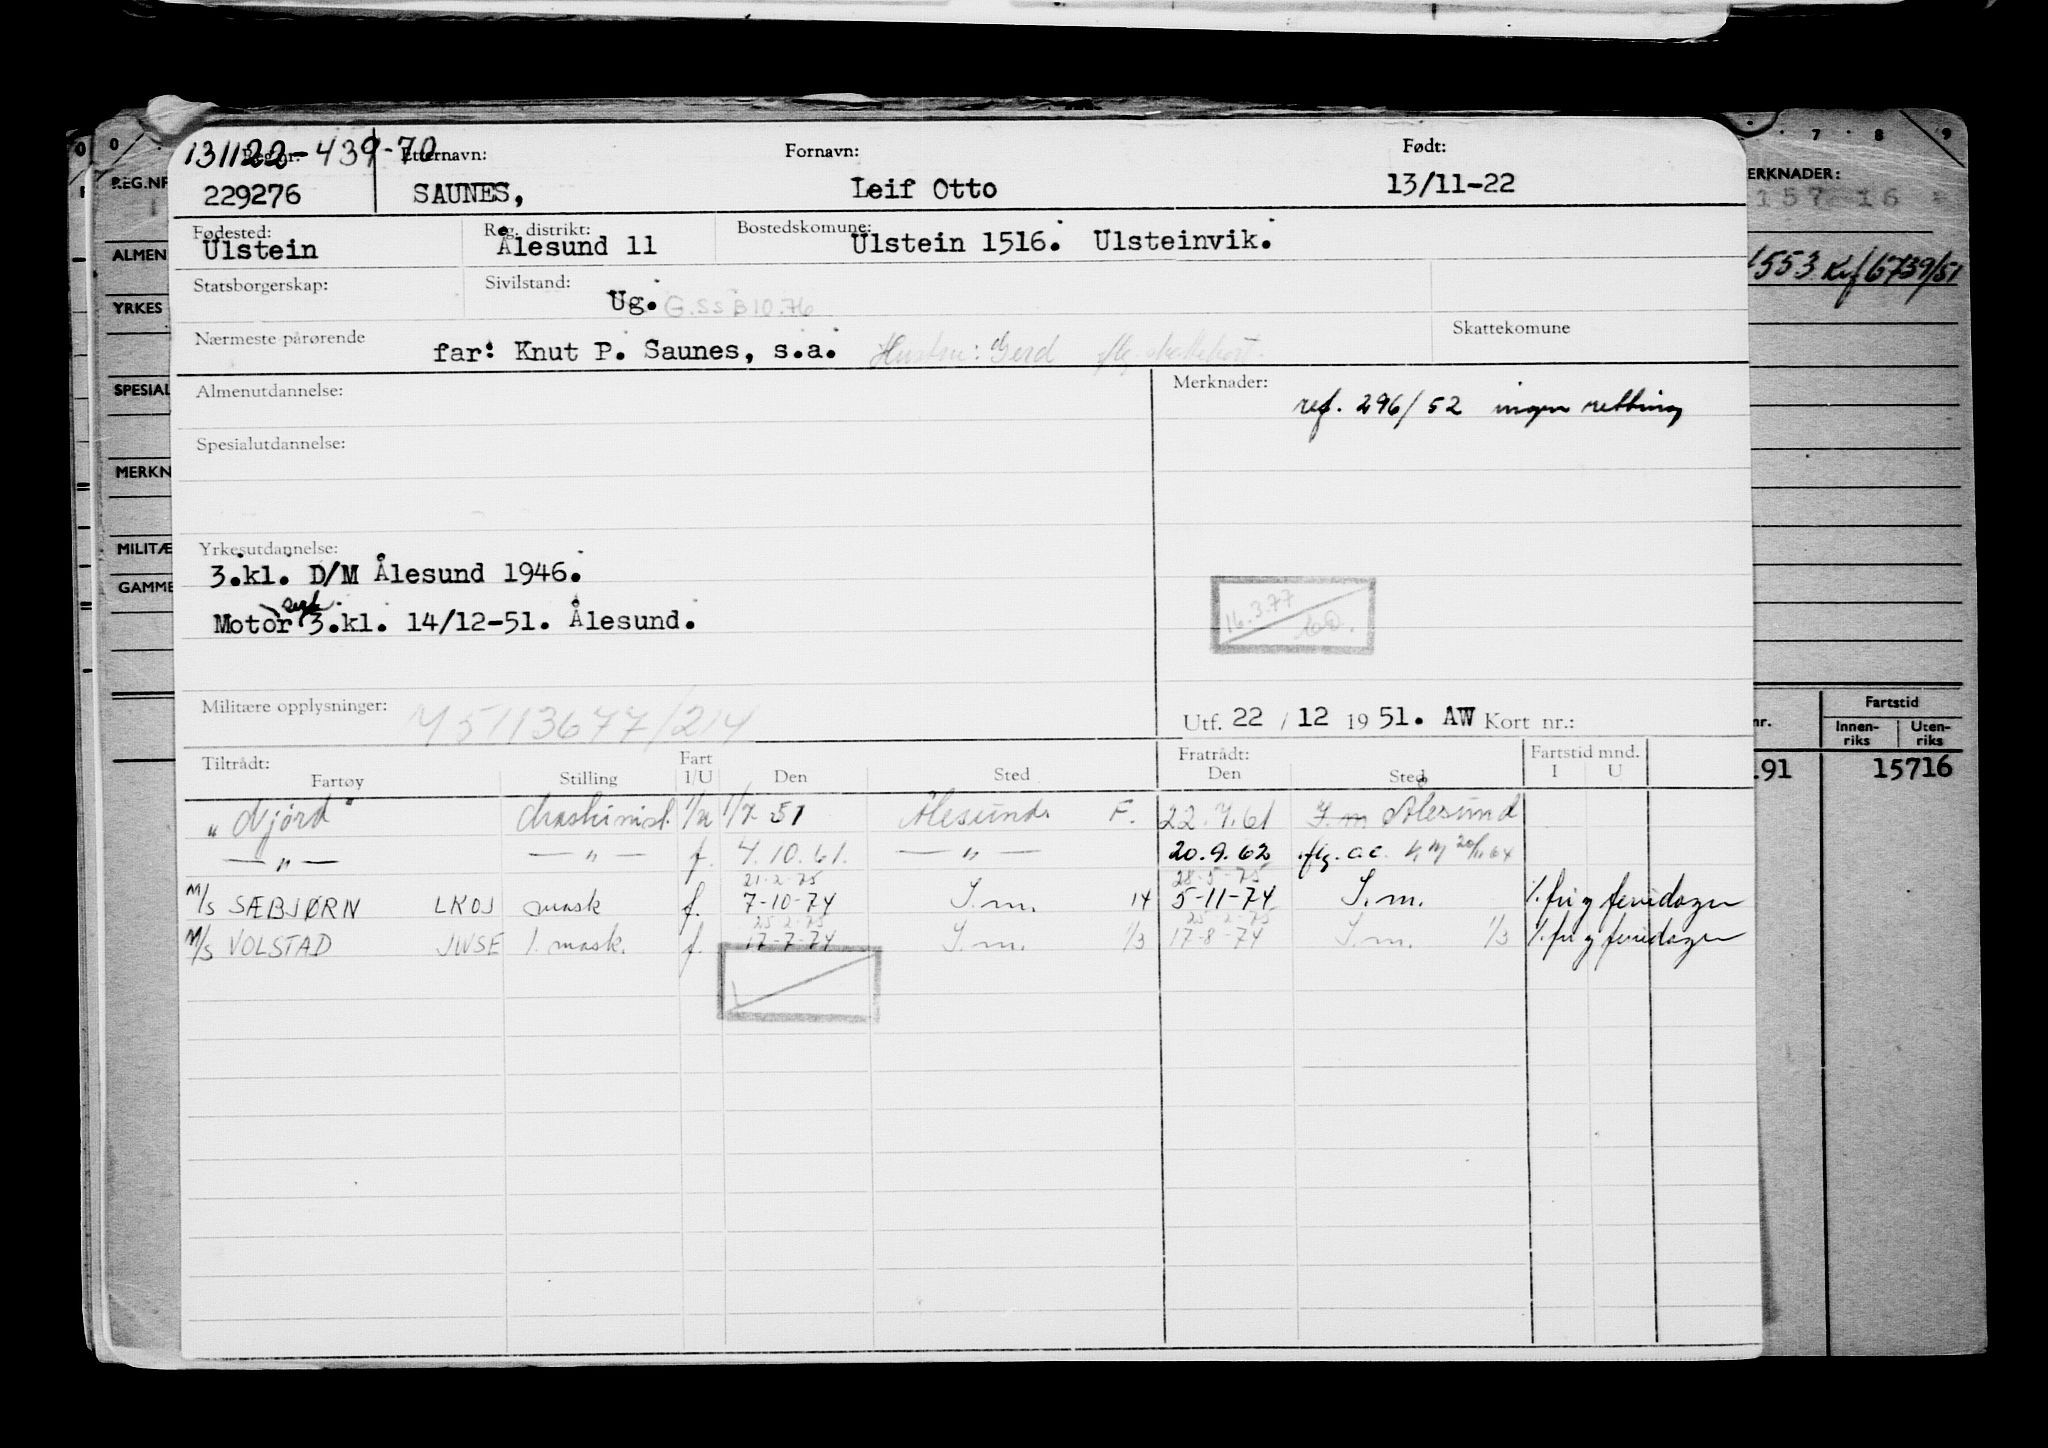 131122-439-70
Reg.nr. Etternavn: Fornavn: Født:
229276 SAUNES, Leif Otto 13/11-22
Fødested: Reg. distrikt: Bostedskommune:
Ulstein Ålesund 11 Ulstein 1516. Ulsteinvik.
Statsborgerskap: Sivilstand:
Ug. G.SSB10.76
Nærmeste pårørende Skattekomune
far: Knut P. Saunes, s.a. Hustru: Gerd
Almenutdannelse: Merknader:
ref. 296/52 ingen retting
Spesialutdannelse:
Yrkesutdannelse:
3.kl. D/M Ålesund 1946.
16.3.77
Motor 3.kl. 14/12-51. Ålesund.
Militære opplysninger: M5113677/214
Utf. 22 / 12 1951. AW Kort nr.:
Tiltrådt: Fart Fratrådt: Fartstid mnd.
Fartøy Stilling I/U Den Sted Den Sted I U
"Njørd" Maskinist. 1/7 51 Ålesund. F. 22.7.61 Ålesund
—"— —"— f. 4.10.61. —"— 20.9.62
21-2-75 28-5-75
M/S SÆBJØRN LKOJ mask f. 7-10-74 I.m. 14 5-11-74 I.m. %. fri og feriedager
25-2-75 25-2-75
M/S VOLSTAD JWSE 1. mask. f. 17-7-74 I.m. 1/3 17-8-74 I.m. 1/3 %. fri og feriedager
0 0 7 8 9
REG.NR ERKNADER:
157 16
ALMEN 553 Kf 6739/51
YRKES
SPESIAL
MERKN
MILITÆ
GAMME
nr. Fartstid
Innen-riks Uten-riks
.91 15716